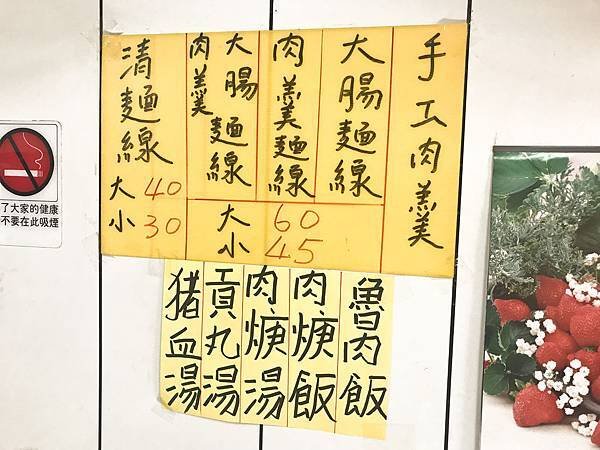 手工肉羹
大腸麵線
肉羹麵線
大腸麵線
肉羹
大 60
小 45
清麵線
大 40
小 30
魯肉飯
肉焿飯
肉焿湯
貢丸湯
猪血湯
了大家的健康
不要在此吸煙